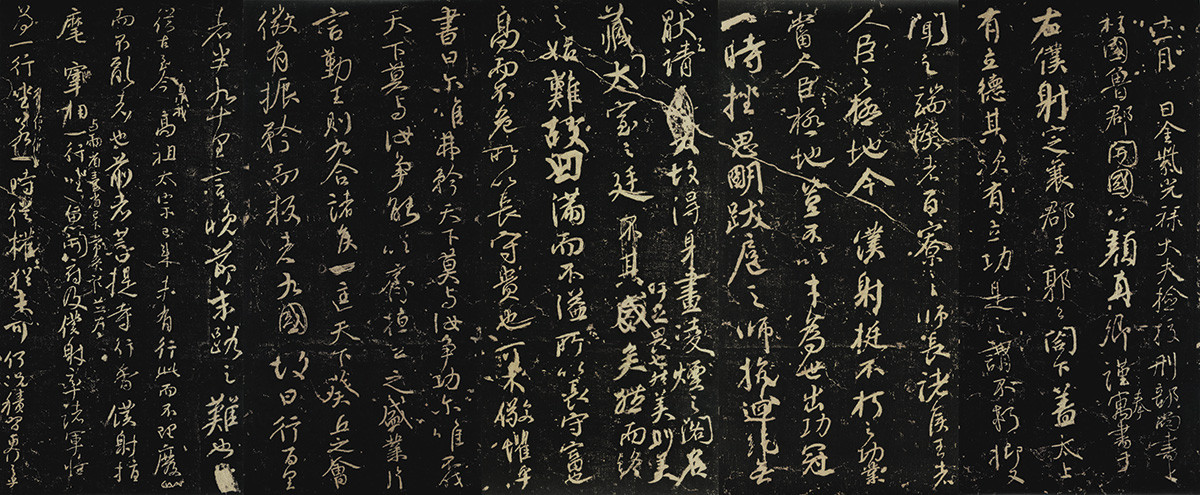 十一月 日金紫光祿大夫檢校刑部尚書上
柱國魯郡開國公顏真卿謹奉寓書于
右僕射定襄郡王郭公閣下蓋太上
有立德其次有立功是之謂不朽抑又
聞之端揆者百寮之師長諸侯王者
人臣之極地今僕射挺不朽之功業
當人臣極地豈不以才為世出功冠
一時挫思明跋扈之師抗迴紇無
厭之請 故得身畫凌煙之閣名
藏太室之廷 吁足畏也然美則美
矣然而終
之始難故曰滿而不溢所以長守富也
高而不危所以長守貴也可不儆懼乎
書曰爾唯弗矜天下莫與汝爭功爾唯不伐
天下莫與汝爭能以齊桓公之盛業片
言勤王則九合諸侯一匡天下葵丘之會
微有振矜而叛者九國故曰行百里
者半九十里言晚節末路之難也
從古至今暨我高祖太宗已來未有行此而不理廢
而不亂者也前者菩提寺行香僕射指
麾宰相與兩省臺省已下常參官並為一行坐魚開府及僕射率諸軍將
為一行坐若一時從權猶未可何況積習更行